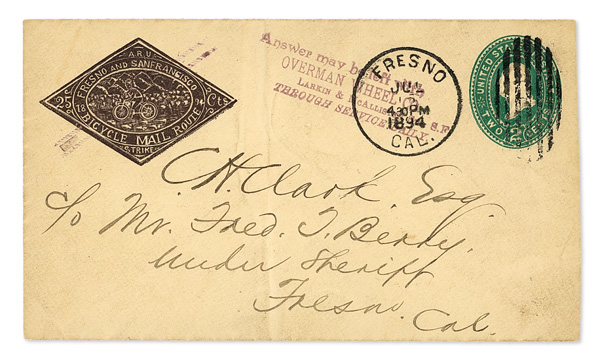 A.R.U.
FRESNO AND SANFRANCISCO
25 Cts
18 94
BICYCLE MAIL ROUTE
STRIKE
Answer may be left
OVERMAN WHEEL Co
LARKIN & McALLISTER S.F.
THROUGH SERVICE DAILY.
FRESNO
JUL
4-30PM
1894
CAL.
UNITED STATES
TWO CENTS
2
C.H. Clark, Esq.
c/o Mr. Fred. T. Berry,
Under Sheriff
Fresno.
Cal.